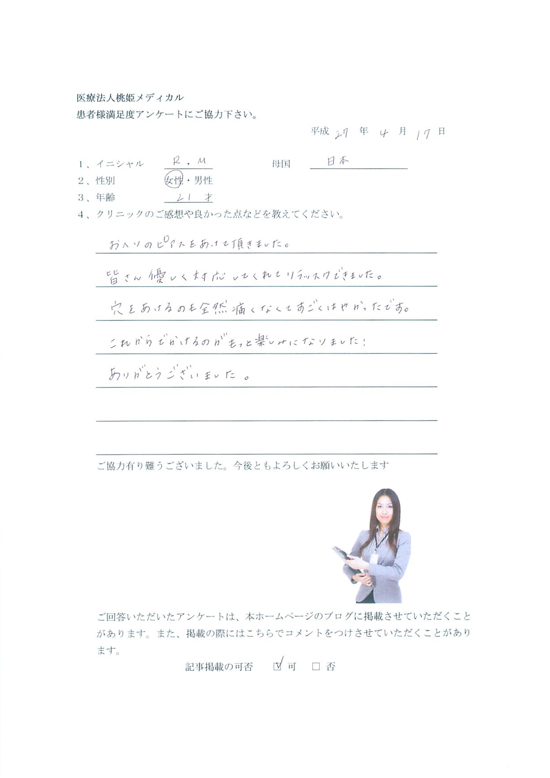 医療法人桃姫メディカル
患者様満足度アンケートにご協力下さい。
平成 27 年 4 月 17 日
1、イニシャル R.M 母国 日本
2、性別 女性・男性
3、年齢 21才
4、クリニックのご感想や良かった点などを教えてください。
おへソのピアスをあけて頂きました。
皆さん優しく対応してくれてリラックスできました。
穴をあけるのも全然痛くなくてすごくはやかったです。
これからでかけるのがもっと楽しみになりました!
ありがとうございました。
ご協力有り難うございました。今後ともよろしくお願いいたします
ご回答いただいたアンケートは、本ホームページのブログに掲載させていただくこと
があります。また、掲載の際にはこちらでコメントをつけさせていただくことがあり
ます。
記事掲載の可否 ☑ 可 □ 否